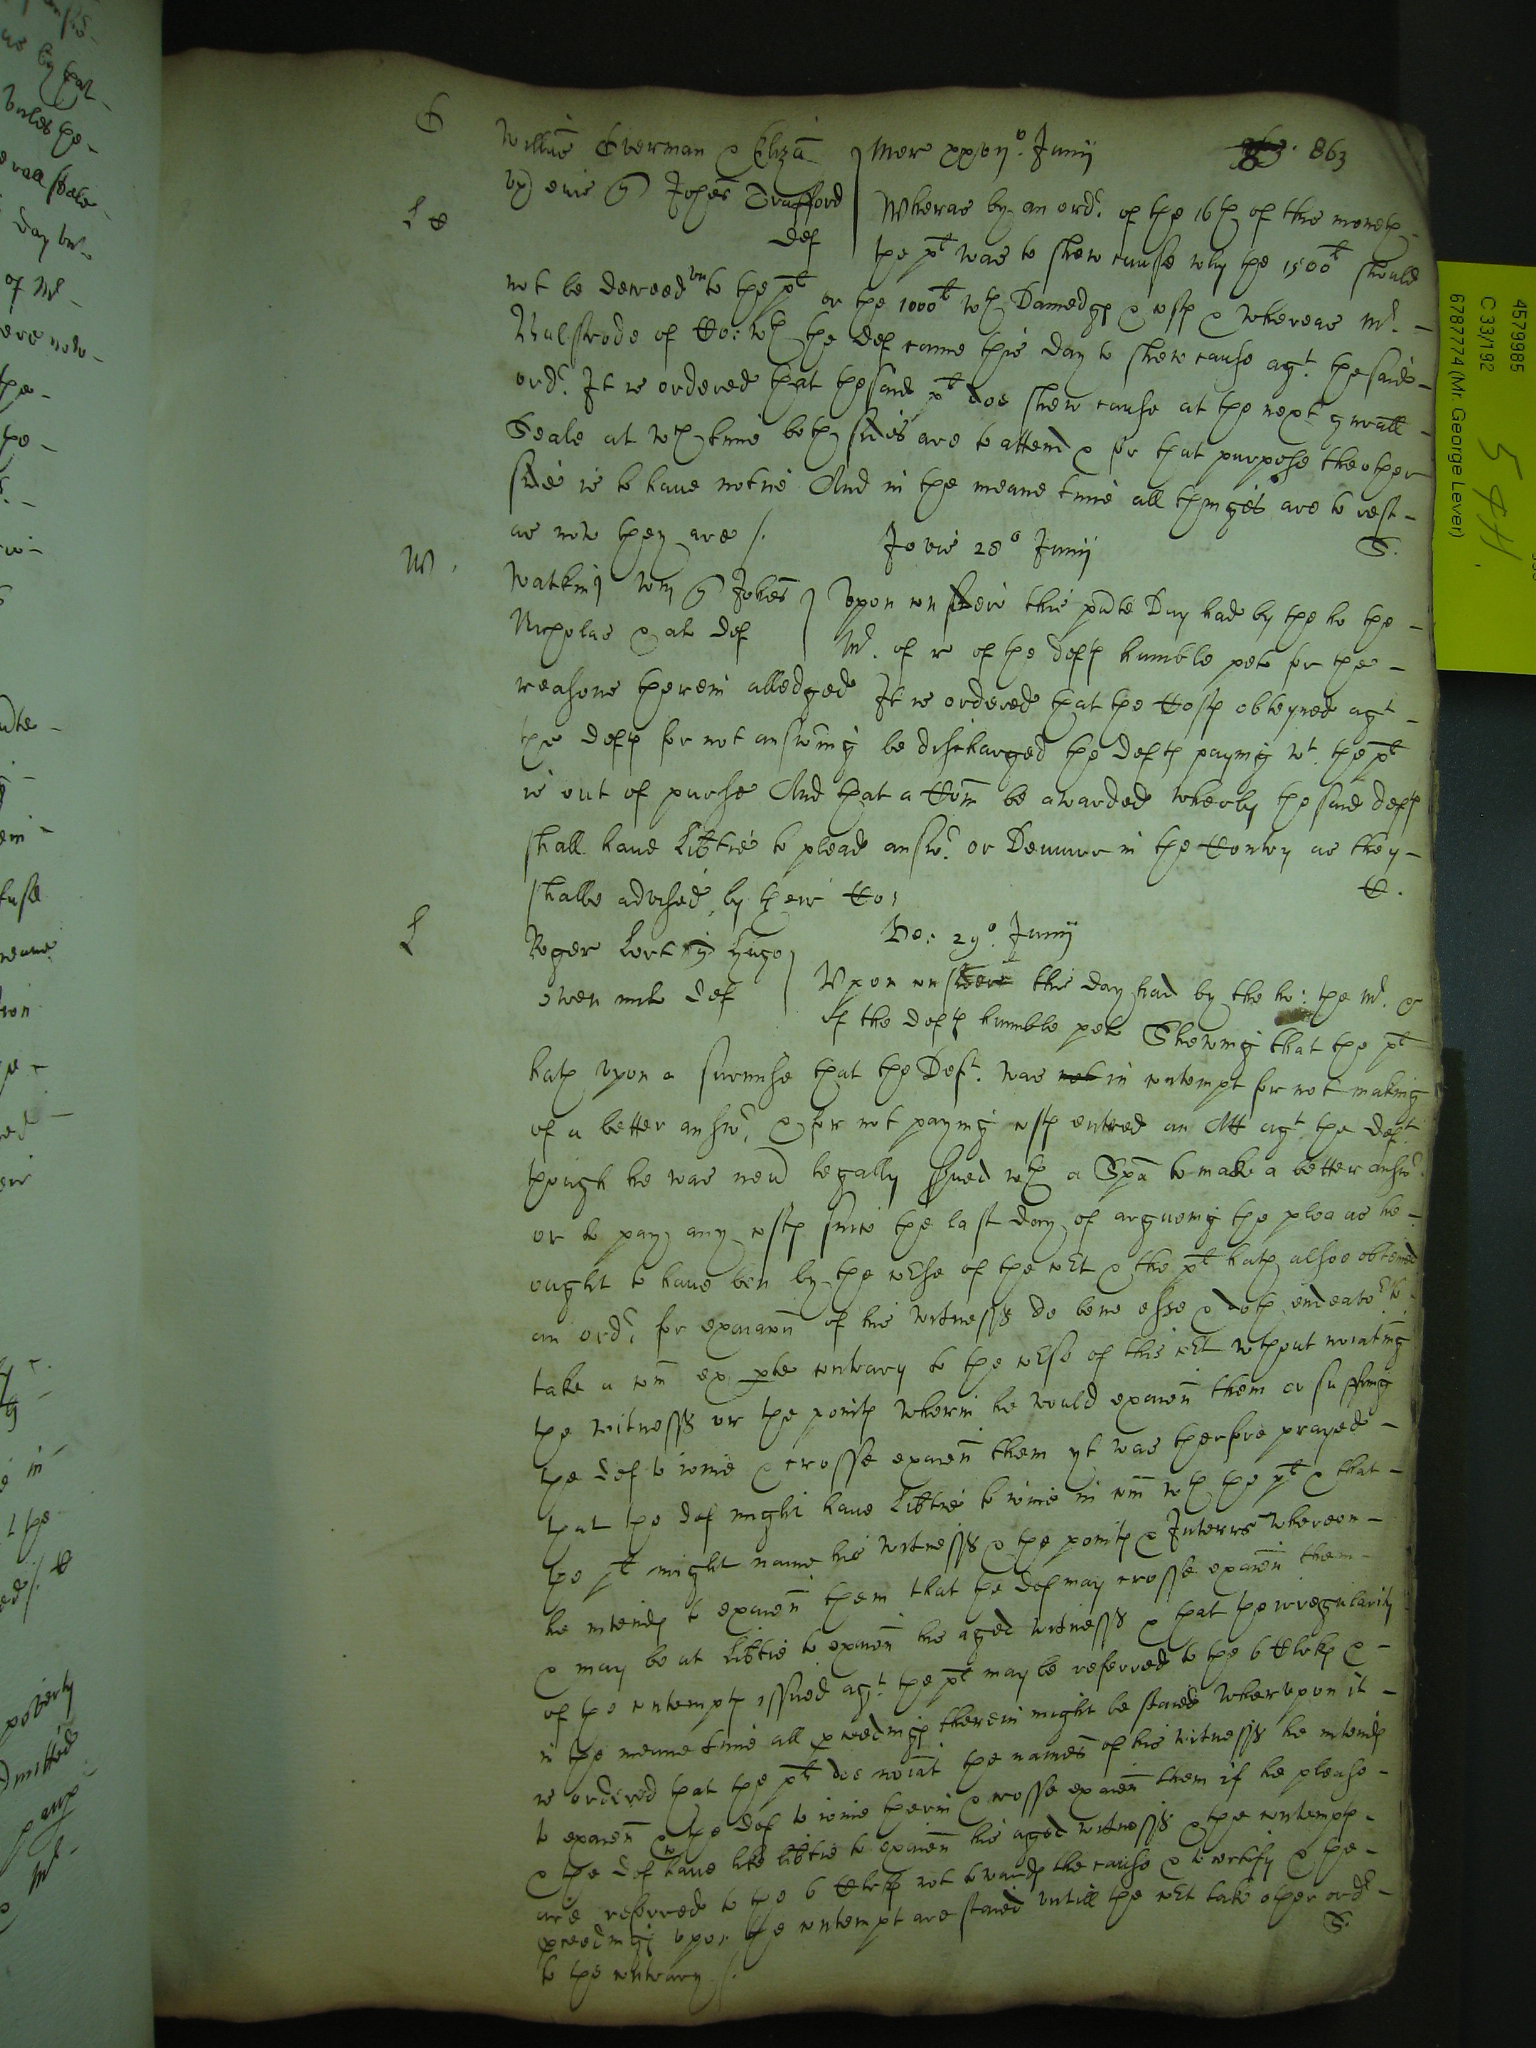 E
Willms Everman & Eliza Mer xxvij.o Junij 863
ux eius q Johes Trafford Wheras by an ordr. of the 16th of this moneth
L E
Def the plt was to shew cause why the 1500l should
not be decreed vnto the plt or the 1000l wth Damedgs & costs & whereas Mr.
Bulstrode of Co: wth the Def came this day to shew cause agt. the said
ordr. It is ordered that the said plt doe shew cause at the next gnrall
Seale at wch time both sides are to attend & for that purpose the other
side is to haue notice And in the meane time all thinges are to rest
as now they are /. S.
Jovis 28o Junij
W.
Watkins q Johes Vpon consideracon this pnte Day had by the ho the
Nicholas & al Def Mr. of ye of the Defts humble peto for the
reasons therein alledged It is ordered that the Costs obteyned agt
the Defts for not answering be discharged the Defts paying wt. the plt
is out of purse And that a Com be awarded wherby the said Defts
shall haue Libtie to plead answr. or Demurr in the Contry as they
shalbe advised by their Co: C.
L
Ve: 29o. Junij
Roger Lort q Hugo
Owen mil Def Vpon this day had by the ho: the Mr. &
of the Defts humble peto Shewing that the plt
hath vpon a surmise that the Deft. was not in contempt for not making
of a better answr. & for not paying costs entred an Att agt. the Deft.
though he was neu legally serued wth a Spa to make a better answr.
or to pay any costs since the last day of argueing the plea as he
ought to haue ben by the course of the Ct & the plt hath alsoe obteined
an ordr. for examcon of his witnesses de bene esse & doth endeavor to
take a com ex pte contrary to the course of this Ct wthout noiating
the witnesses or the points wherin he would examen them or suffring
the Def to ioine & crosse examen them yt was therfore prayed
that the Def might haue Libtie to ioine in com wth the plt & that
the plt might name his witnesses & the points & Interrs whereon
he intends to examen them that the Def may crosse examen them
& may be at Libtie to examen his aged witnesses & that the irregularity
of the contempts issued agt. the plt may be referred to the 6 Clerks &
in the meane time all pceedings therein might be staied Wherupon it
is ordered that the plt doe noiat the names of his witnesses he intends
to examen & the Def to ioine therin & crosse examen them if he please
& the Def to haue like libtie to examen his aged witnesses & the contempts
are referred to the 6 Clerks not towards the cause & to certify & the
pceedings vpon the contempt are staied vntill the Ct take other ordr
to the contrary /. S.
4579985
C 33/192
6787774 (Mr. George Lever)